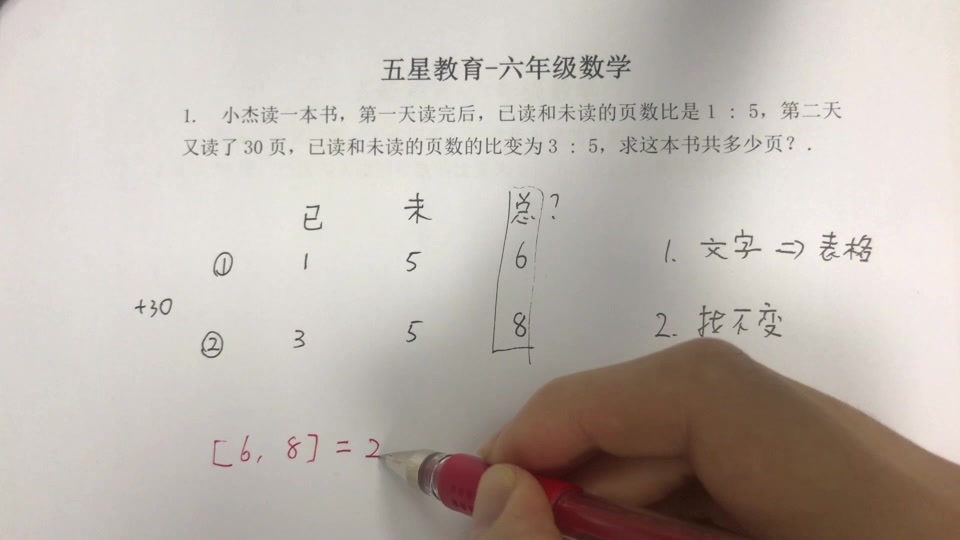 五星教育-六年级数学
1. 小杰读一本书，第一天读完后，已读和未读的页数比是 1 : 5，第二天
又读了 30 页，已读和未读的页数的比变为 3 : 5，求这本书共多少页？.
已 未 总？
① 1 5 6
+30
② 3 5 8
1. 文字 => 表格
2. 找不变
[6, 8] = 2